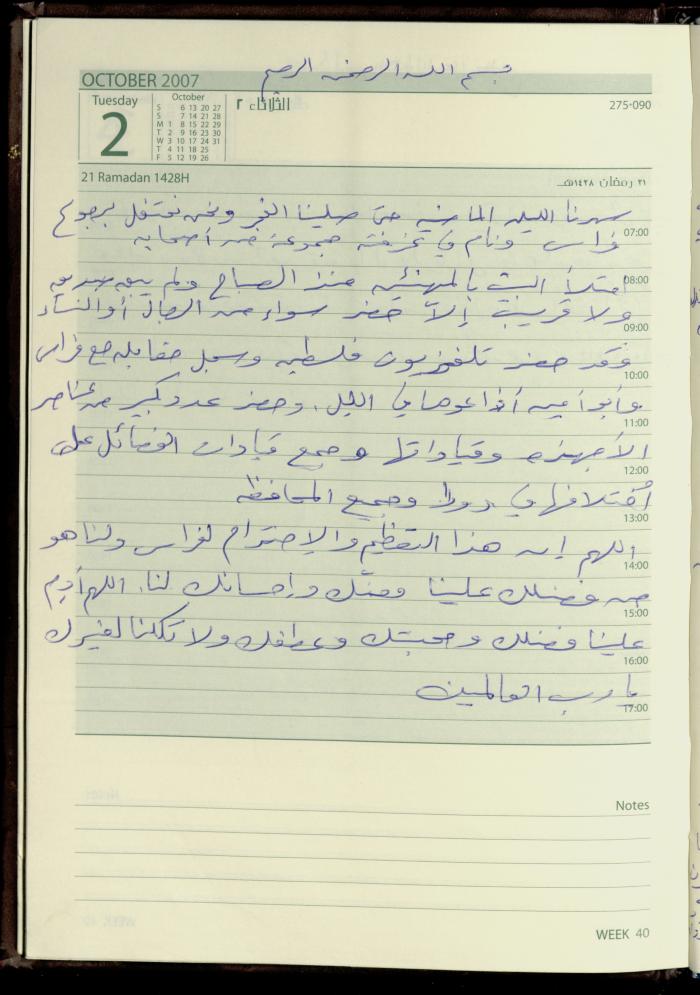 بسم الله الرحمن الرحيم
OCTOBER 2007
Tuesday
2
October
S 6 13 20 27
S 7 14 21 28
M 1 8 15 22 29
T 2 9 16 23 30
W 3 10 17 24 31
T 4 11 18 25
F 5 12 19 26
الثلاثاء ٢
275-090
21 Ramadan 1428H
٢١ رمضان ١٤٢٨هـ
سهرنا الليلة الماضية حتى صلينا الفجر ونحن نحتفل برجوع
07:00
فراس ونام في غرفته مجموعة من أصحابه
08:00
امتلأ البيت بالمهنئين منذ الصباح ولم يبق صديق
ولا قريب إلا حضر سواء من الرجال أو النساء
09:00
فقد حضر تلفزيون فلسطين وسجل مقابلة مع فراس
10:00
وأبو أمين أذاعوها في الليل. وحضر عدد كبير من عناصر
11:00
الأجهزة وقياداتها وجميع قيادات الفصائل على
12:00
اختلافها في دورا وجميع المحافظة
13:00
اللهم إن هذا التعظيم والاحترام لفراس ولنا هو
14:00
من فضلك علينا ومنّك وإحسانك لنا. اللهم أدم
15:00
علينا فضلك ومحبتك وعطفك ولا تكلنا لغيرك
16:00
يا رب العالمين
17:00
Notes
WEEK 40